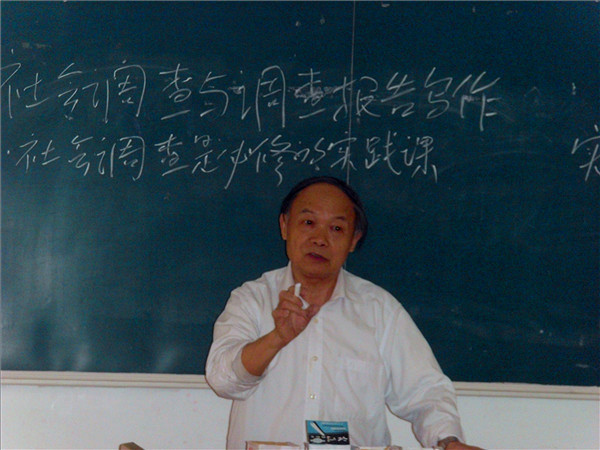 社会调查与调查报告写作
社会调查是必修的实践课
实